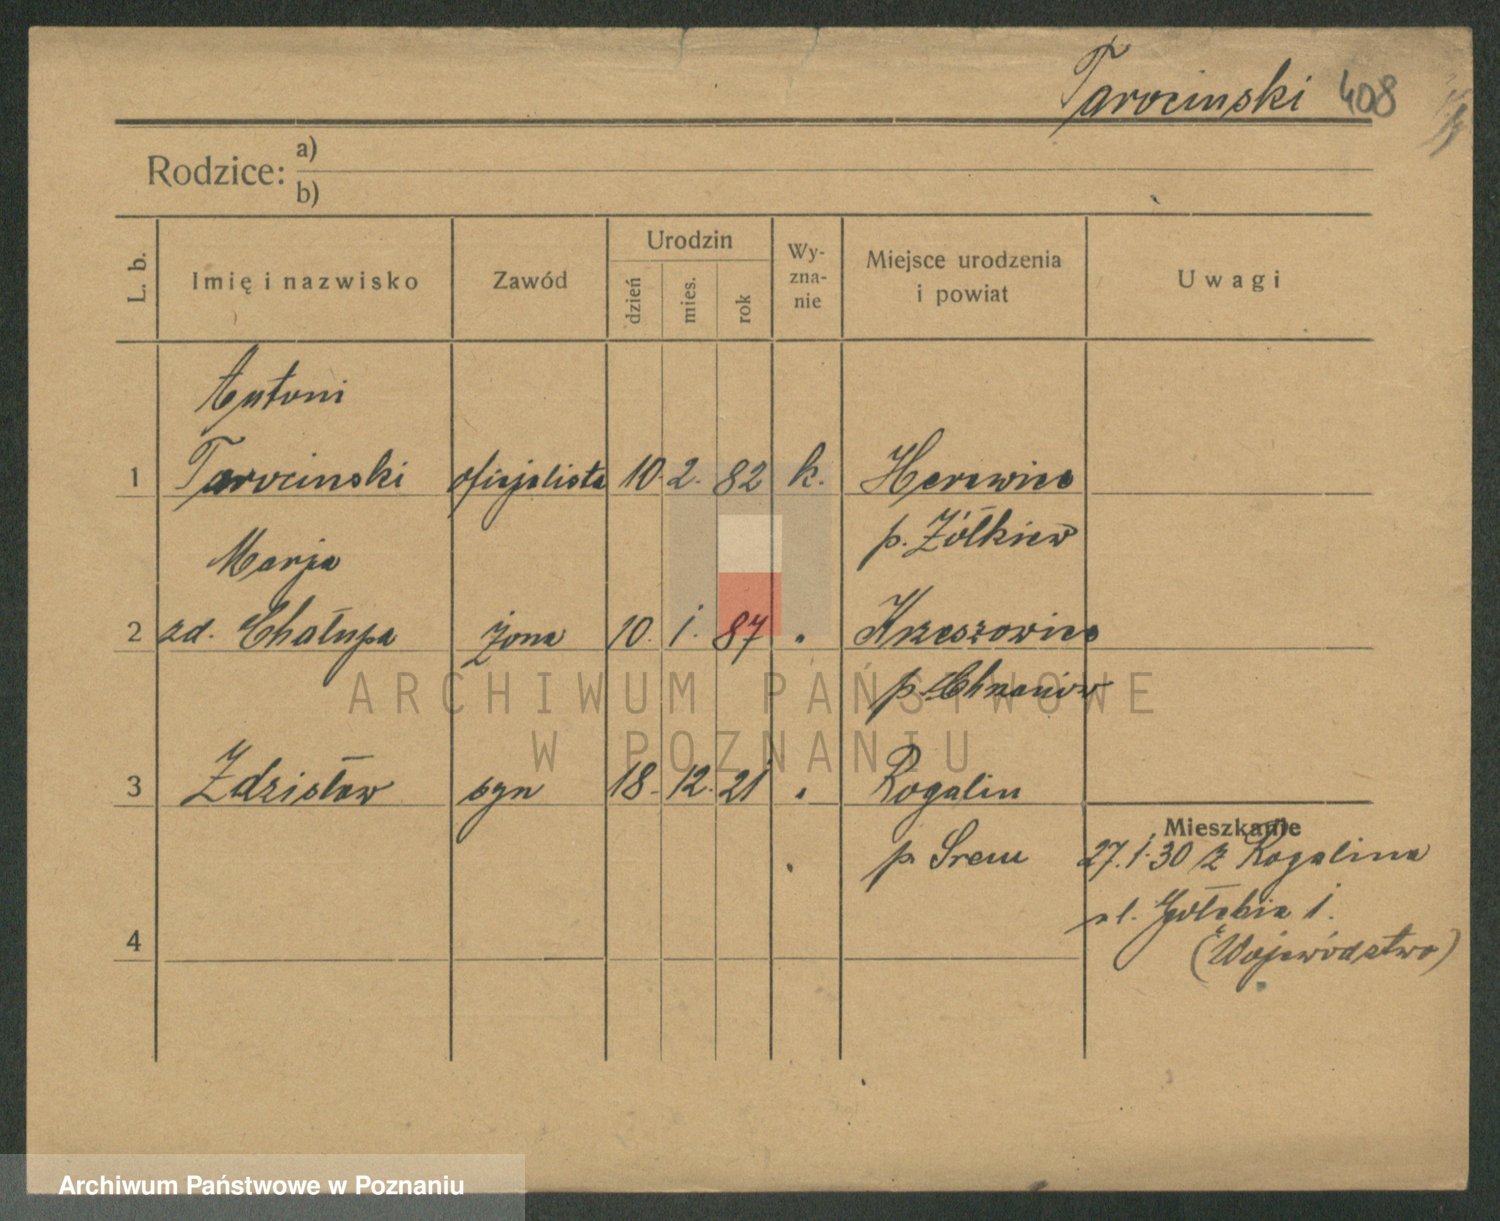 Tarocinski 408
Rodzice: a)
b)
L. b. Imię i nazwisko Zawód Urodzin dzień mies. rok Wy-zna-nie Miejsce urodzenia i powiat Uwagi
Antoni
1 Tarocinski oficjalista 10. 2. 82 k. Herewice
p. Żółkiew
Marja
2 zd. Chałupa żona 10. 1. 87 " Krzeszowice
p. Chrzanów
3 Zdzisław syn 18. 12. 21 " Rogalin
Mieszkanie
p. Śrem 27.1.30 z Rogalina
ul. Gołębia 1.
4 (Województwo)
ARCHIWUM PAŃSTWOWE
W POZNANIU
Archiwum Państwowe w Poznaniu